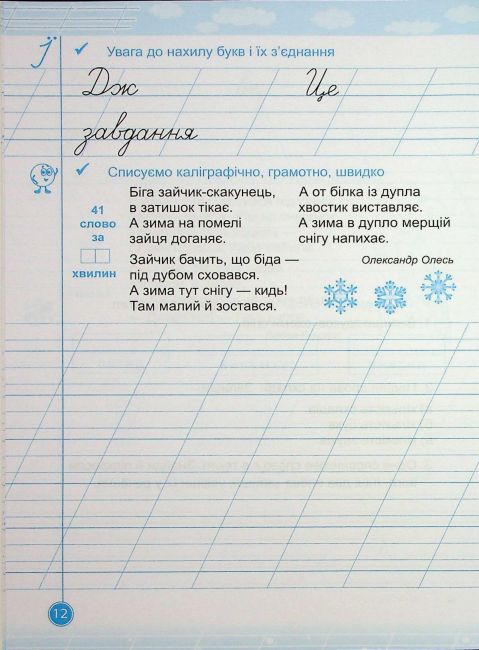 Ї
Увага до нахилу букв і їх з’єднання
Дж Це
завдання
Списуємо каліграфічно, грамотно, швидко
41
слово
за
хвилин
Біга зайчик-скакунець,
в затишок тікає.
А зима на помелі
зайця доганяє.
Зайчик бачить, що біда —
під дубом сховався.
А зима тут снігу — кидь!
Там малий й зостався.
А от білка із дупла
хвостик виставляє.
А зима в дупло мерщій
снігу напихає.
Олександр Олесь
12